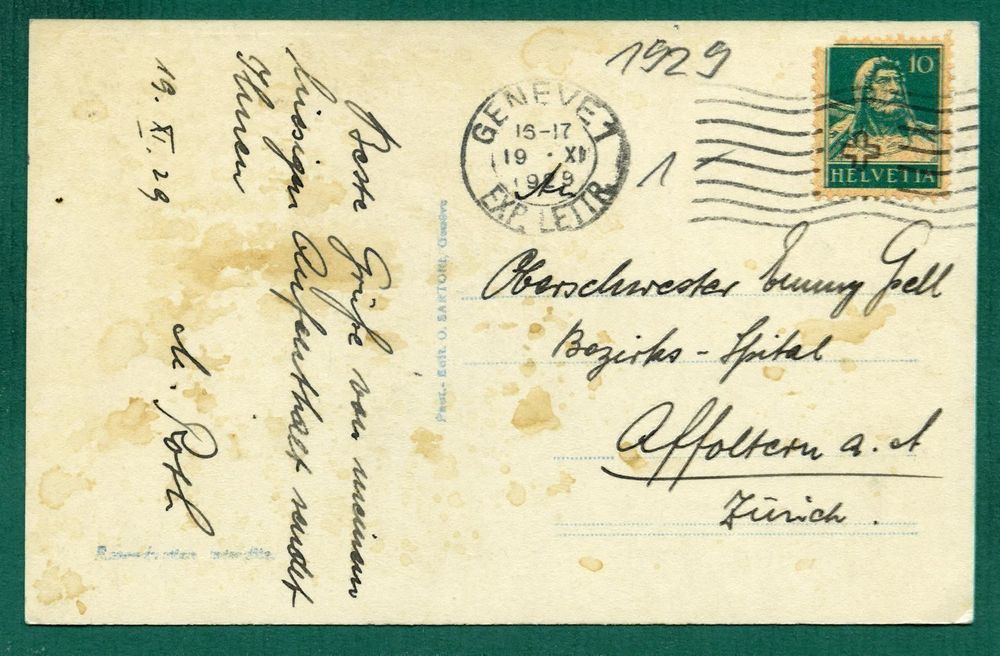 1929
GENEVE 1
16-17
19 · XI
1929
EXP. LETTR.
10
HELVETIA
1 -
An
Oberschwester Emmy Gsell
Bezirks-Spital
Affoltern a. A
Zürich.
Beste Grüße von meinem
hiesigen Aufenthalt sendet
Ihnen
M. Roth
19. XI. 29
Phot.- Edit. O. SARTORI, Genève
Reproduction interdite.